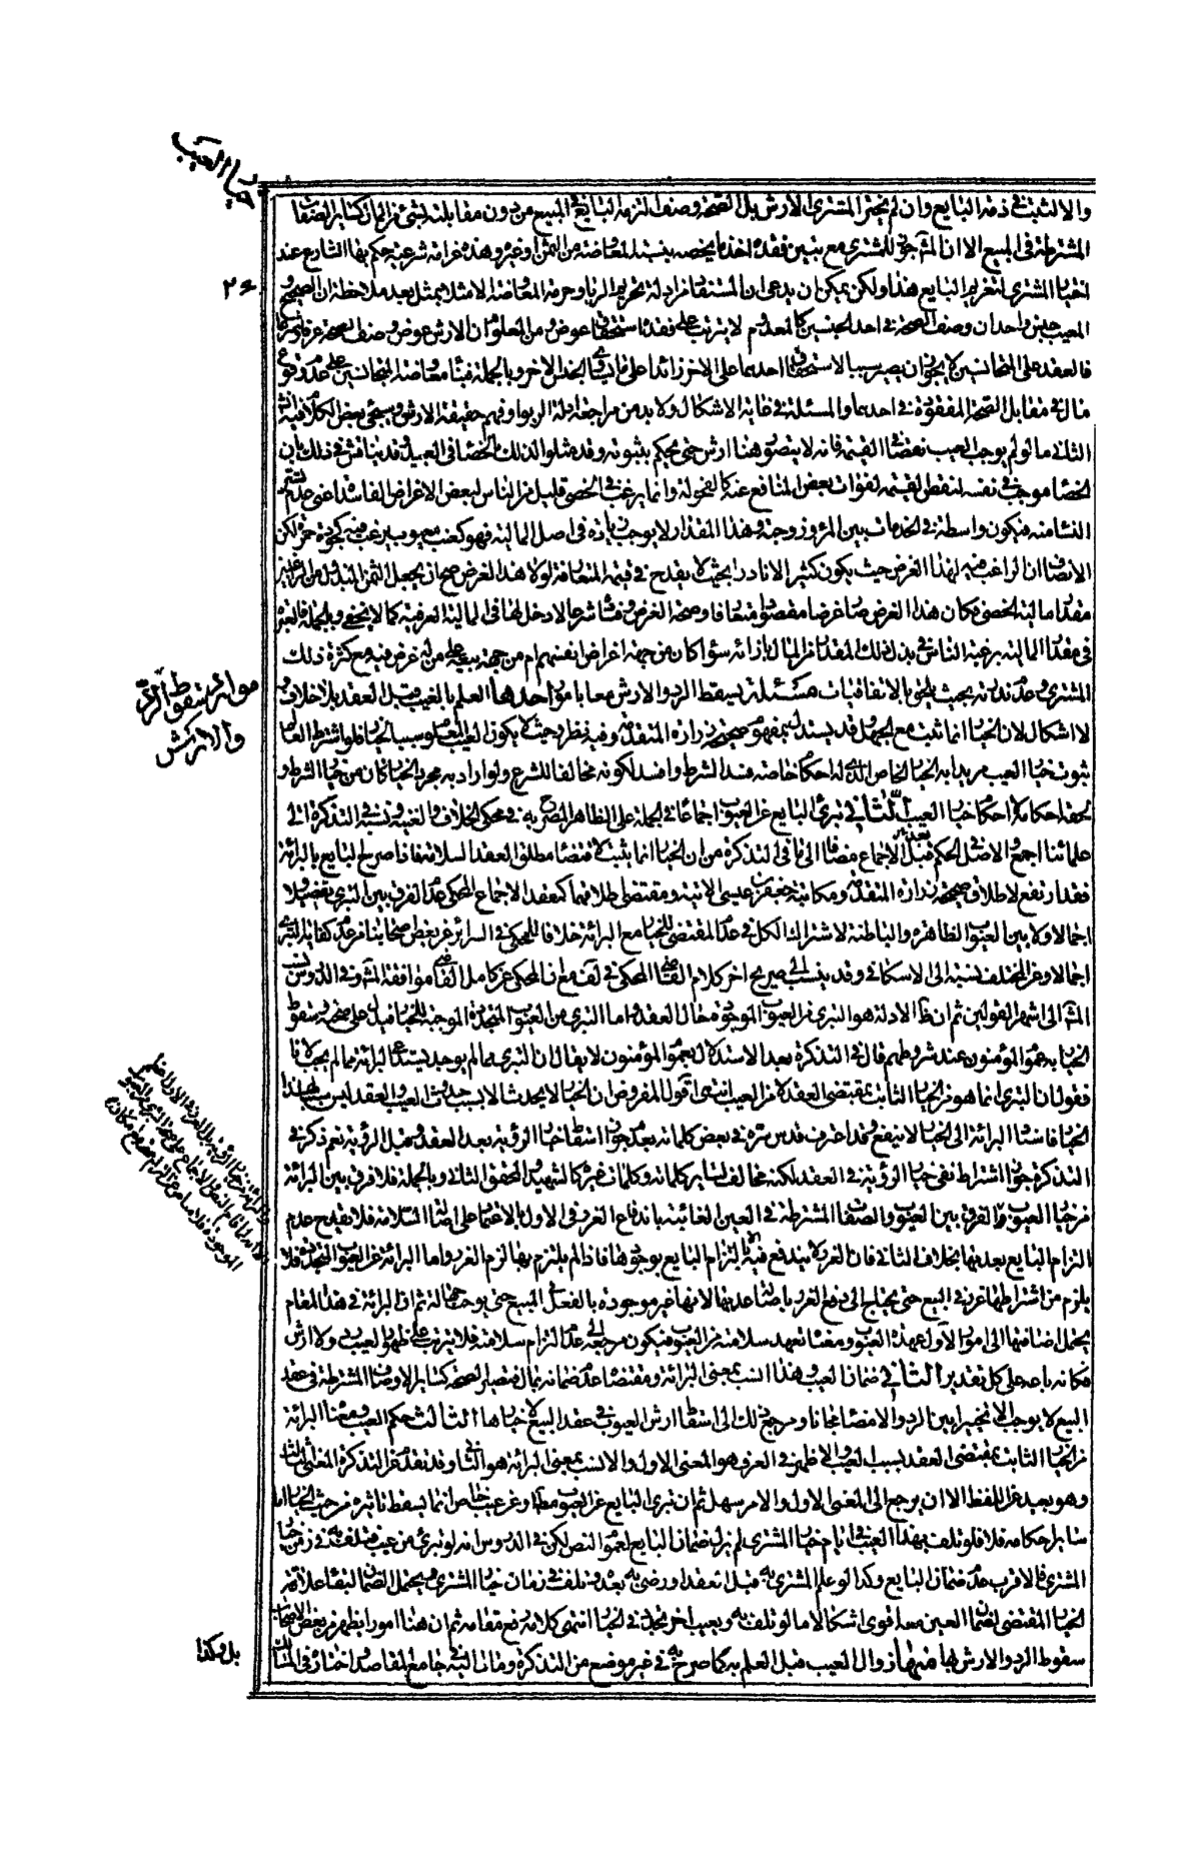 خيار العيب
والا لثبت في ذمة البايع وان لم يختر المشتري الارش بل الصحة وصف التزمه البايع في المبيع من دون مقابلته بشئ من الثمن كساير الصفات
المشترطة في المبيع الا ان الشارع جوز للمشتري مع تبين فقده اخذ ما يخصه بنسبة المعاوضة من الثمن او غيره وهذه غرامة شرعية حكم بها الشارع عند
اختيار المشتري لتغريم البايع هذا ولكن يمكن ان يدعى ان المستفاد من ادلة تحريم الربا وحرمة المعاوضة الا مثلا بمثل بعد ملاحظة ان الصحيح و
المعيب جنس واحد ان وصف الصحة في احد الجنسين كالمعدوم لا يترتب على فقده استحقاق عوض ومن المعلوم ان الارش عوض وصف الصحة عرفا وشرعا
فالعقد على المتجانسين لا يجوز ان يصير سببا لاستحقاق احدهما على الاخر زائدا على ما يساوي الجنس الاخر وبالجملة فبناء معاوضة المتجانسين على عدم وقوع
مال في مقابل الصحة المفقودة في احدهما والمسئلة في غاية الاشكال ولا بد من مراجعة ادلة الربوا وفهم حقيقة الارش وسيجئ بعض الكلام فيه انش
الثاني ما لو لم يوجب العيب نقصا في القيمة فانه لا يتصور هنا ارش حتى يحكم بثبوته وقد مثلوا لذلك بالخصاء في العبيد وقد يناقش في ذلك بان
الخصاء موجب في نفسه لنقص القيمة لفوات بعض المنافع عنه كالفحولة وانما يرغب في الخصي قليل من الناس لبعض الاغراض الفاسدة اعني عدم تستر
النساء منه فيكون واسطة في الخدمات بين المرء وزوجته وهذا المقدار لا يوجب زيادة في اصل المالية فهو كعنب معيوب يرغب فيه لجودة خمره لكن
الانصاف ان الراغب فيه لهذا الغرض حيث يكون كثيرا لا نادرا بحيث لا يقدح في قيمته المتعارفة لولا هذا الغرض صح ان يجعل الثمن المبذول من الراغبين
مقدار مالية الخصي فكان هذا الغرض صار غرضا مقصودا متعارفا وصحة الغرض وفساده شرعا لا دخل لها في المالية العرفية كما لا يخفى وبالجملة فالعبرة
في مقدار المالية برغبة الناس في بذل ذلك المقدار من المال بازائه سواء كان من جهة اغراض انفسهم ام من جهة بيعه على من له غرض فيه مع كثرة ذلك
المشتري وعدم ندرته بحيث يلحق بالاتفاقيات مسئلة يسقط الرد والارش معا بامور احدها العلم بالعيب قبل العقد بلا خلاف و
لا اشكال لان الخيار انما ثبت مع الجهل وقد يستدل بمفهوم صحيحة زرارة المتقدمة وفيه نظر وحيث لا يكون العيب المعلوم سببا لخيار فلو اشترط العالم
ثبوت خيار العيب مريدا به الخيار الخاص الذي له احكام خاصة فسد الشرط وافسد لكونه مخالفا للشرع ولو اراد به مجرد الخيار كان من خيار الشرط و
لحقه احكامه لا احكام خيار العيب الثاني تبرئ البايع عن العيوب اجماعا في الجملة على الظاهر المصرح به في محكي الخلاف والغنية ونسبه في التذكرة الى
علمائنا اجمع والاصل في الحكم قبل الاجماع مضافا الى ما في التذكرة من ان الخيار انما يثبت لاقتضاء مطلق العقد السلامة فاذا صرح البايع بالبرائة
فقد ارتفع الاطلاق صحيحة زرارة المتقدمة ومكاتبة جعفر بن عيسى الاتية ومقتضى اطلاقهما كمعقد الاجماع المحكي عدم الفرق بين التبري تفصيلا و
اجمالا ولا بين العيوب الظاهرة والباطنة لاشتراك الكل في عدم المقتضي للخيار مع البرائة خلافا للمحكي في السرائر عن بعض اصحابنا من عدم كفاية التبري
اجمالا وعن المختلف نسبته الى الاسكافي وقد ينسب الى صريح اخر كلام القاضي المحكي في لف مع ان المحكي عن كامل القاضي موافقة المشهور وفي الدروس نسب
المشهور الى اشهر القولين ثم ان ظاهر الادلة هو التبري من العيوب الموجودة حال العقد واما التبري من العيوب المتجددة الموجبة للخيار فيدل على صحته وسقوط
الخيار به عموم المؤمنون عند شروطهم قال في التذكرة بعد الاستدلال بعموم المؤمنون لا يقال ان التبري مما لم يوجد يستدعي البرائة مما لم يجب لانا
نقول ان التبري انما هو من الخيار الثابت بمقتضى العقد لا من العيب انتهى اقول المفروض ان الخيار لا يحدث الا بسبب حدوث العيب والعقد ليس سببا لهذا
الخيار فاسناد البرائة الى الخيار لا ينفع وقد اعترف قدس سره في بعض كلماته بعدم جواز اسقاط خيار الرؤية بعد العقد وقبل الرؤية نعم ذكر في
التذكرة جواز اشتراط نفي خيار الرؤية في العقد لكنه مخالف لساير كلماته وكلمات غيره كالشهيد والمحقق الثاني وبالجملة فلا فرق بين البرائة
من خيار العيوب والفرق بين العيوب والصفات المشترطة في العين الغائبة باندفاع الغرر في الاول بالاعتماد على اصالة السلامة فلا يقدح عدم
التزام البايع بعدمها بخلاف الثاني فان الغرر لا يندفع فيه الا بالتزام البايع بوجودها فاذا لم يلتزم بها لزم الغرر واما البرائة عن العيوب المتجددة فلا
يلزم من اشتراطها غرر في البيع حتى يحتاج الى دفع الغرر باصالة عدمها لانها غير موجودة بالفعل في المبيع حتى يوجب جهالة ثم ان البرائة في هذا المقام
يحتمل اضافتها الى امور الاول عهدة العيوب ومعناه تعهد سلامته من العيوب فيكون مرجعه الى عدم التزام سلامته فلا يترتب على ظهور العيب رد ولا ارش
فكانه باعه على كل تقدير الثاني ضمان العيب وهذا انسب بمعنى البرائة ومقتضاه عدم ضمانه بمال فتصير الصحة كساير الاوصاف المشترطة في عقد
البيع لا يوجب الا تخييرا بين الرد والامضاء مجانا ومرجع ذلك الى اسقاط ارش العيوب في عقد البيع لا خيارها الثالث حكم العيب ومعناه البرائة
من الخيار الثابت بمقتضى العقد بسبب العيب والاظهر في العرف هو المعنى الاول والانسب بمعنى البرائة هو الثاني وقد تقدم عن التذكرة المعنى الثالث
وهو بعيد عن اللفظ الا ان يرجع الى المعنى الاول والامر سهل ثم ان تبرى البايع عن العيوب مطلقا او عن عيب خاص انما يسقط تاثيره من حيث الخيار اما
ساير احكامه فلا فلو تلف بهذا العيب في ايام خيار المشتري لم يزل ضمان البايع لعموم النص لكن في الدروس انه لو تبرئ من عيب فتلف به في زمن خيار
المشتري فالاقرب عدم ضمان البايع وكذا لو علم المشتري به قبل العقد او رضي به بعده وتلف في زمان خيار المشتري ويحتمل الضمان لبقاء علاقة
الخيار المقتضي لضمان العين معه اقوى اشكالا ما لو تلف به وبعيب اخر تجدد في الخيار انتهى كلامه رفع مقامه ثم ان هنا امورا يظهر من بعض الاصحاب
سقوط الرد والارش بها منها زوال العيب قبل العلم به كما صرح به في غير موضع من التذكرة ومال اليه في جامع المقاصد واختاره في المسالك
موارد سقوط الرد
والارش
بل وكذا